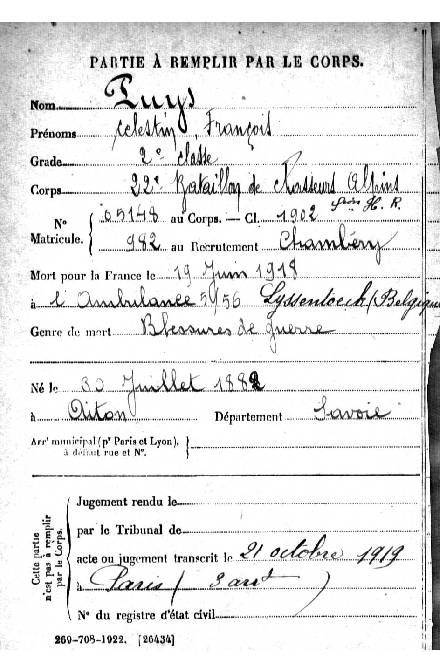 PARTIE À REMPLIR PAR LE CORPS.
Nom Puys
Prénoms Célestin François
Grade 2e classe
Corps 22e Bataillon de Chasseurs Alpins
Nº Matricule. { 05148 au Corps. — Cl. 1902 H. R.
982 au Recrutement Chambéry
Mort pour la France le 19 Juin 1918
à l'Ambulance 5/56 (Belgique
Genre de mort Blessures de guerre
Né le 30 Juillet 1882
à Aiton Département Savoie
Arrt municipal (pr Paris et Lyon),
à défaut rue et Nº.
Cette partie n'est pas à remplir par le Corps.
Jugement rendu le
par le Tribunal de
acte ou jugement transcrit le 21 octobre 1919
à Paris (3 arrt)
Nº du registre d'état civil
269-708-1922. [26434]